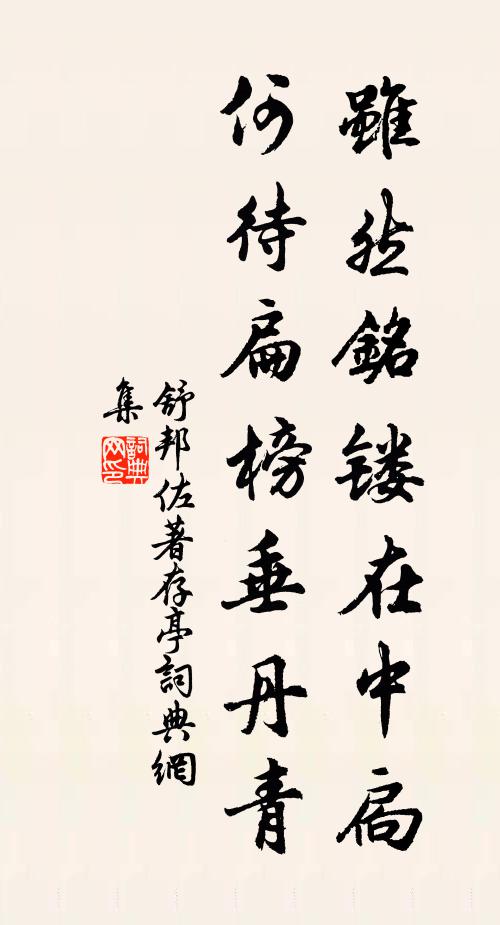 雖然銘镂在中扃
何待扁榜垂丹青
舒邦佐著存亭詞典網
集
詞典
网印